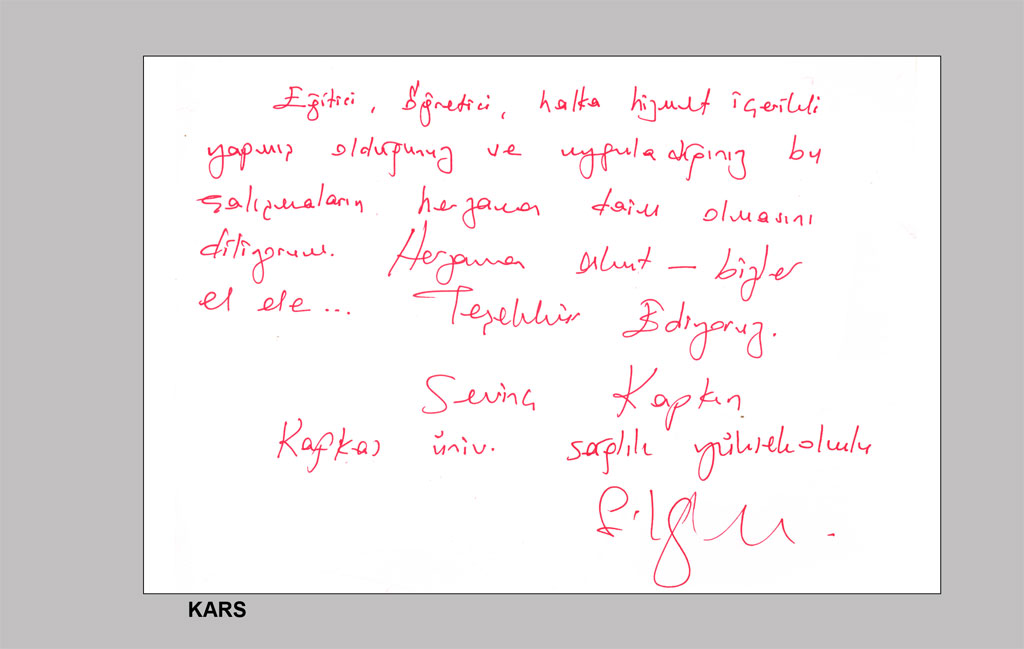 Eğitici, öğretici, halka hizmet içerikli
yapmış olduğunuz ve uyguladığınız bu
çalışmaların herzaman daim olmasını
diliyorum. Herzaman umut – bizler
el ele... Teşekkür Ediyoruz.
Sevinç Kapkın
Kafkas üniv. sağlık yüksekokulu
KARS